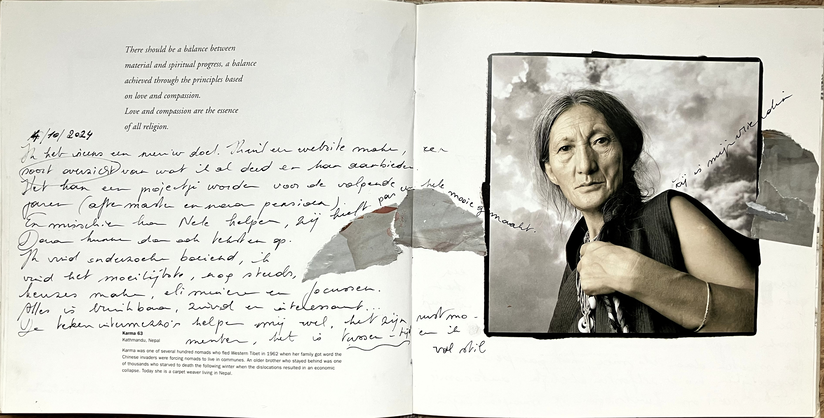 There should be a balance between
material and spiritual progress, a balance
achieved through the principles based
on love and compassion.
Love and compassion are the essence
of all religion.
4/10/2024
Ik heb ineens een nieuw doel. Ik wil een website maken, een
soort overzicht van wat ik al deed en kan aanbieden.
Het kan een projectje worden voor de volgende
jaren (aftermaster en na pensioen).
En misschien kan Nele helpen, zij heeft pas hele mooie gemaakt.
Daar kunnen dan ook teksten op.
Ik vind onderzoeken boeiend, ik
vind het moeilijkste, nog steeds,
keuzes maken, elimineren en focussen.
Alles is bruikbaar, zinvol en interessant...
De tekenintermezzo's helpen mij wel, het zijn rustmo-
menten, het is tussen-tijd en ik
val stil
zij is mijn vriendin
Karma 63
Kathmandu, Nepal
Karma was one of several hundred nomads who fled Western Tibet in 1962 when her family got word the
Chinese invaders were forcing nomads to live in communes. An older brother who stayed behind was one
of thousands who starved to death the following winter when the dislocations resulted in an economic
collapse. Today she is a carpet weaver living in Nepal.